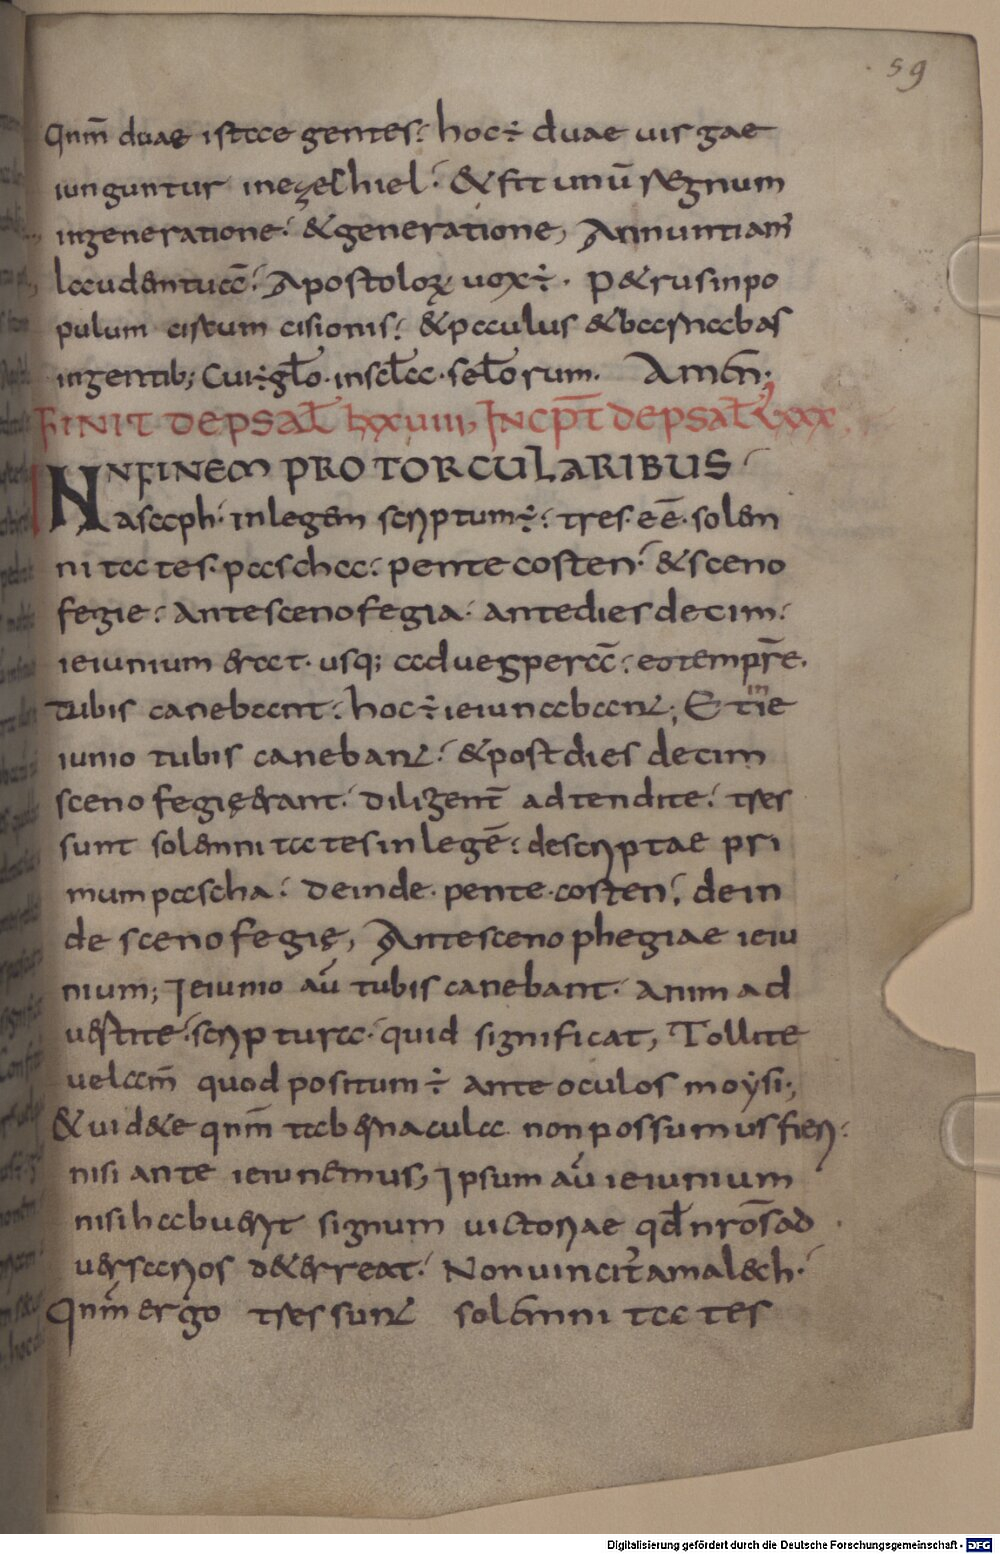 59
Qnm̄ duae istae gentes. hoc ÷ duae uirgae
iunguntur inezechiel. & fit unū regnum
ingeneratione. & generatione, Annuntiam̄
laudem tuā. Apostoloꝝ uox ÷. P&rus inpo
pulum circum cisionis. & paulus & barnabas
ingentib; Cui ÷ gło. in scła. scłorum. Amen;
FINIT DE PSAŁ LXXVIIII, INCP̄T DE PSAŁ LXXX
IN FINEM PRO TORCULARIBUS
asaph. in legem scriptum ÷. tres. eē. solem
nitates. pascha. pentecosten. & sceno
fegie. Ante scenofegia. ante dies decim.
ieiunium erat. usq; ad uesperā. eo tempr̄e.
tubis canebant. hoc ÷ ieiunabant; Et in ie
iunio tubis canebant. & post dies decim
scenofegię erant. diligent̄ adtendite. tres
sunt solemnitates in legē. descriptae pri
mum pascha. deinde. pentecosten. dein
de scenofegię, Ante scenophegiae ieiu
nium; Ieiunio aū tubis canebant. Animad
uertite. scriptura. quid significat, Tollite
uelam̄ quod positum ÷ ante oculos moysi;
& uid&e qnm̄ tabernacula non possumus fieri.
nisi ante ieiunemus, Ipsum aū ieiunium
nisi habuerit signum uictoriae qđ nr̄os ad
uersarios d&erreat. Non uincit amalech.
Qnm̄ ergo tres sunt solemnitates
Digitalisierung gefördert durch die Deutsche Forschungsgemeinschaft - DFG